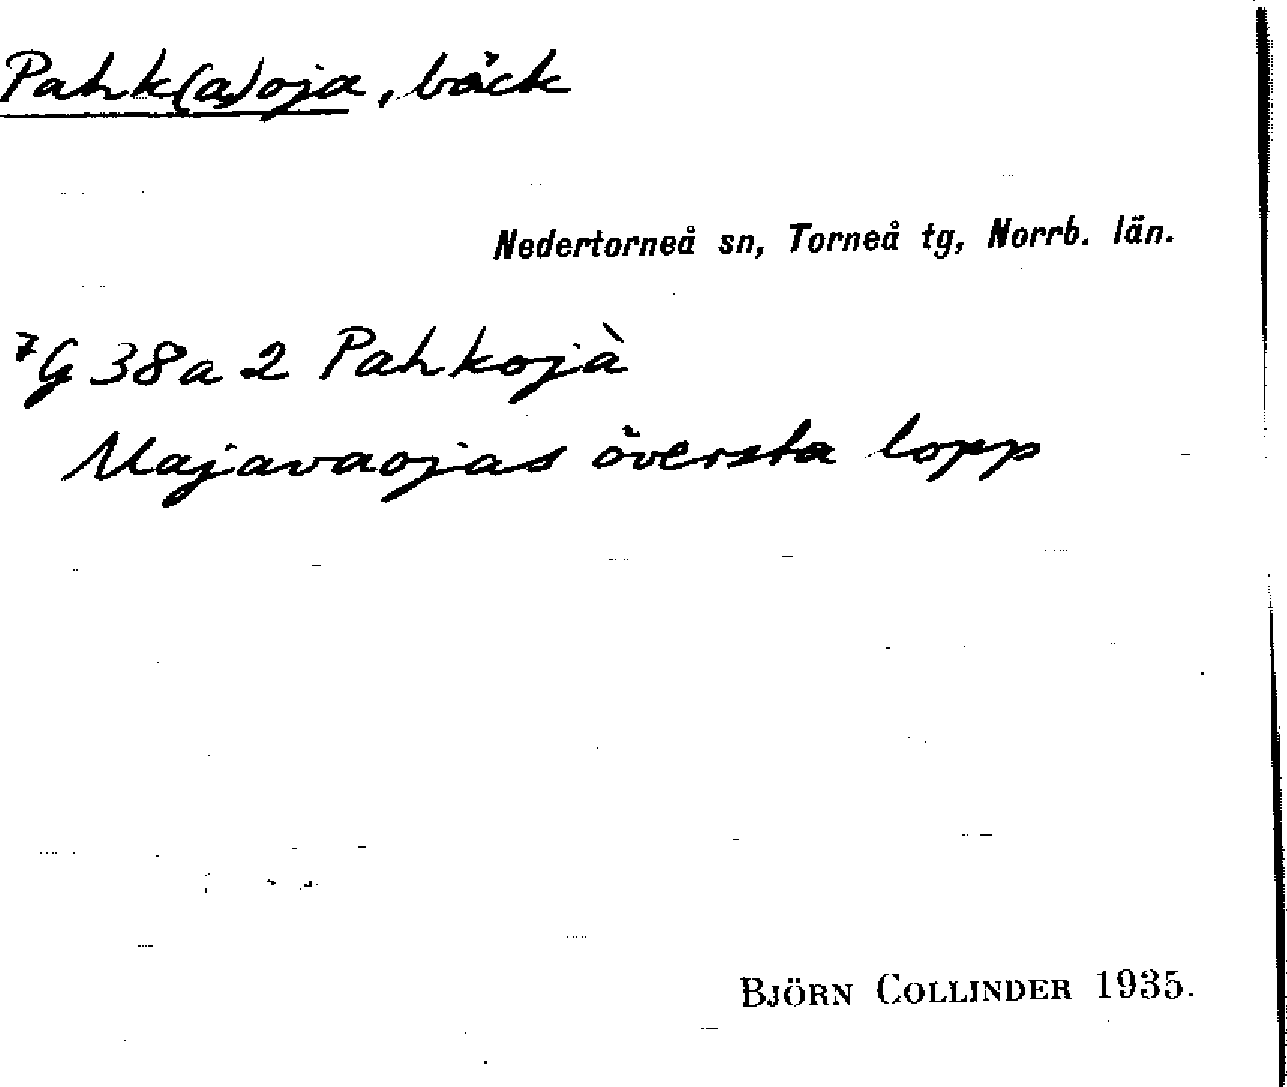 Pahk(a)oja, bäck
Nedertorneå sn, Torneå tg, Norrb. län.
7G 38a 2 Pahkojà
Majavaojas översta lopp
BJÖRN COLLINDER 1935.